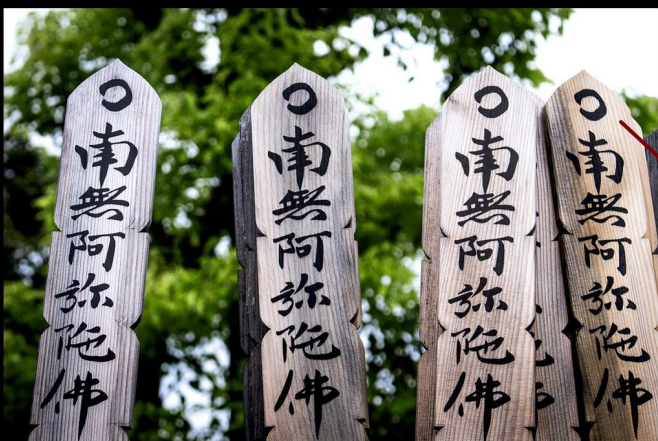 〇南無阿弥陀佛
〇南無阿弥陀佛
〇南無阿弥陀佛
〇南無阿弥陀佛